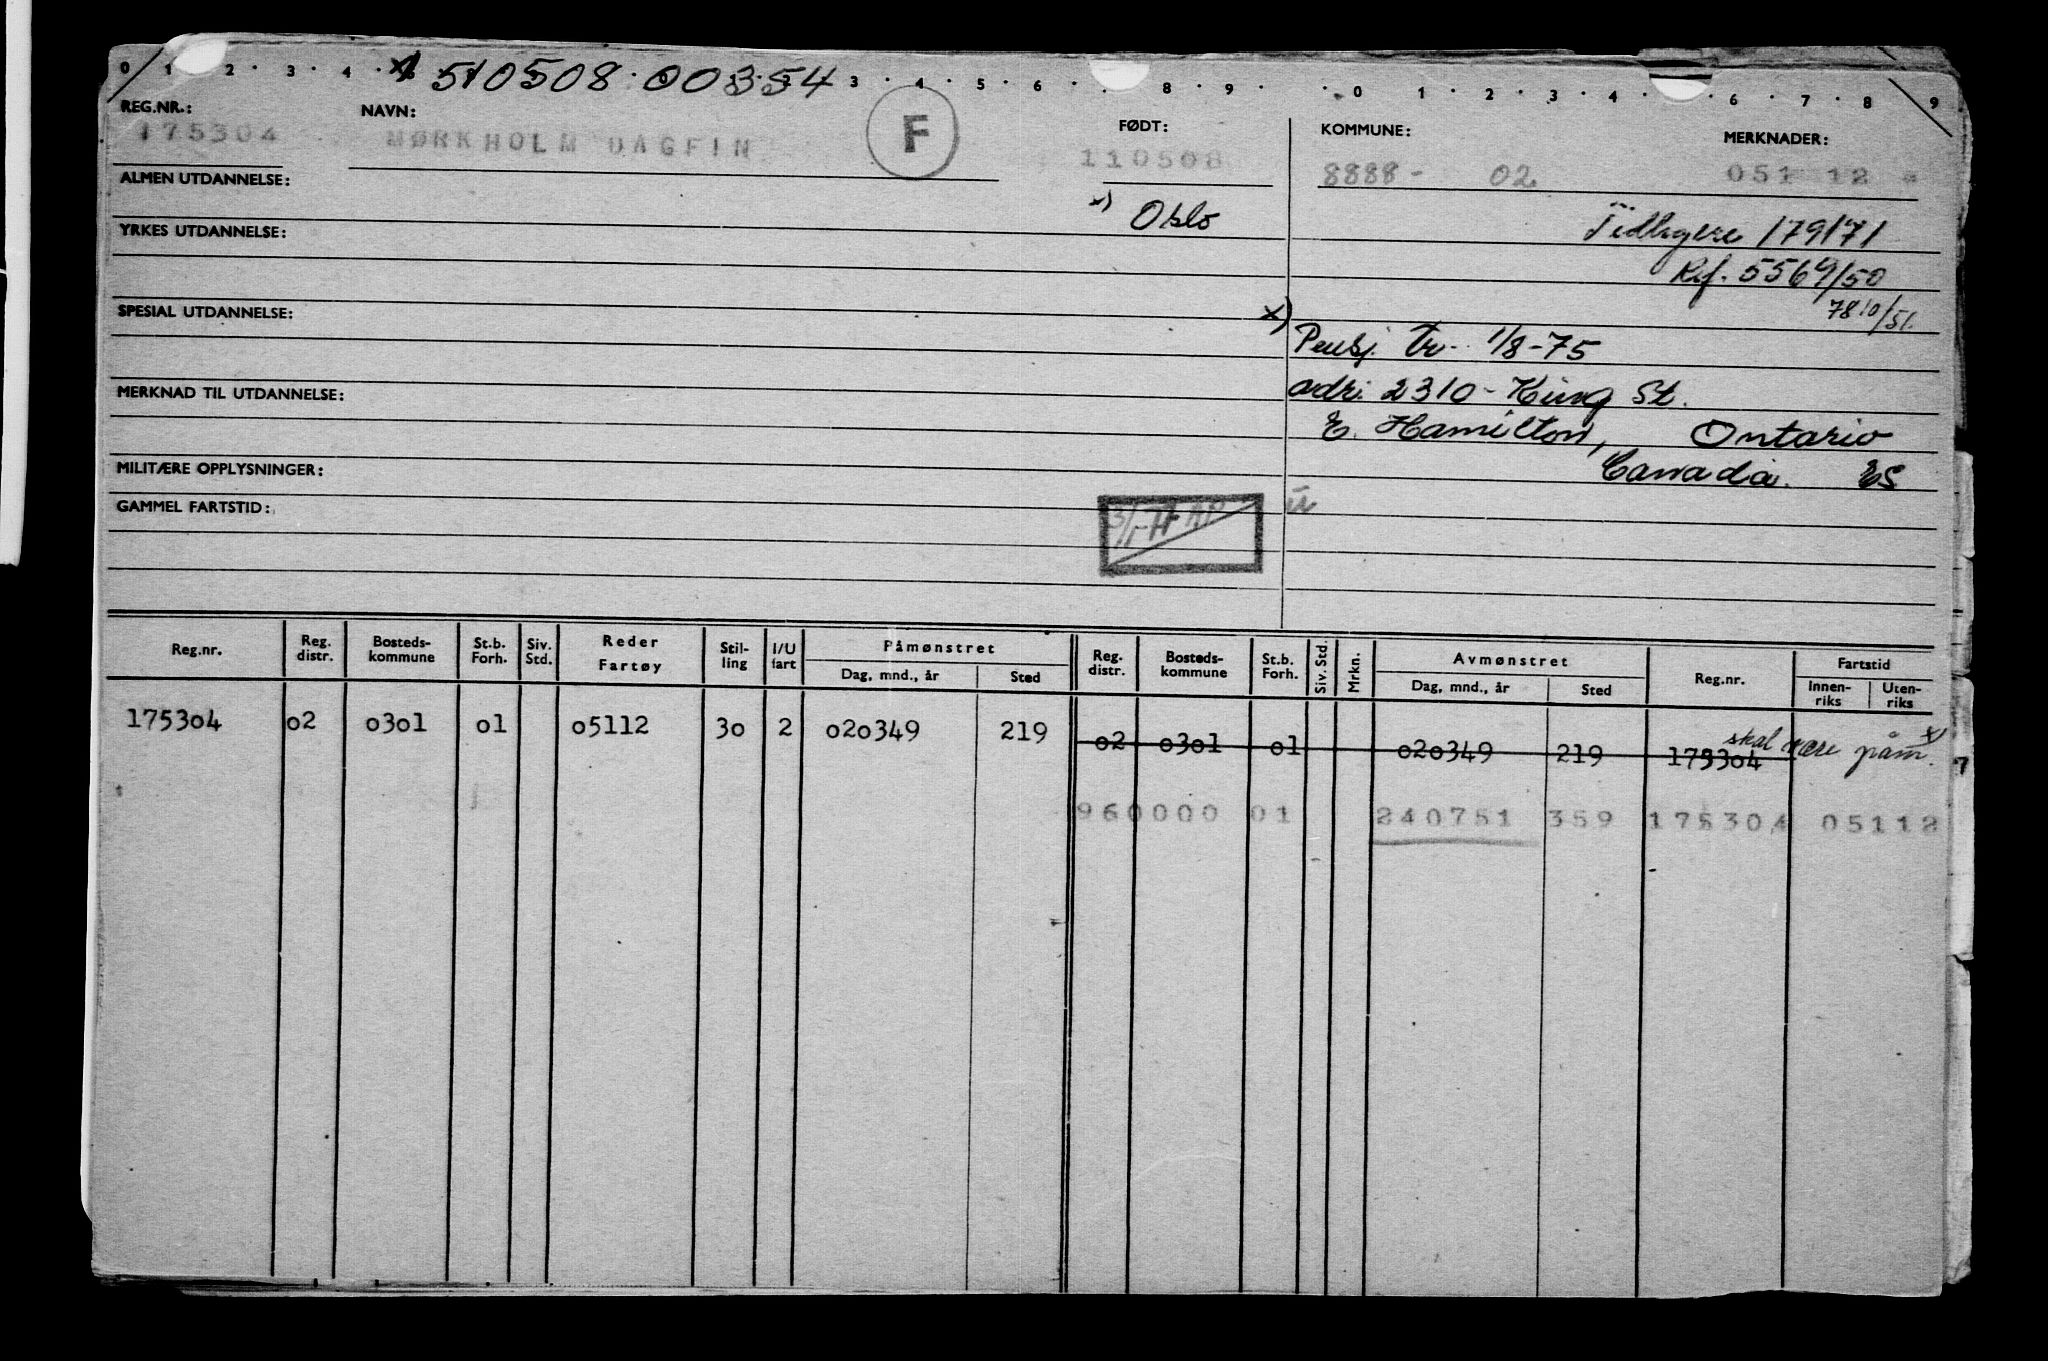 0 1 2 3 4 510508 00354 3 4 5 6 8 9 0 1 2 3 4 6 7 8 9
REG.NR.: NAVN: FØDT: KOMMUNE: MERKNADER:
175304 MØRKHOLM DAGFIN F 110508 8888- 02 051 12
ALMEN UTDANNELSE:
x) Oslo Tidligere 179171
YRKES UTDANNELSE:
Ref. 5569/50
7810/51.
SPESIAL UTDANNELSE: x)
Pensj. tr. 1/8-75
MERKNAD TIL UTDANNELSE: adr: 2310 - King St.
E. Hamilton, Ontario
MILITÆRE OPPLYSNINGER: Canada. ES
GAMMEL FARTSTID:
Reg.nr. Reg. distr. Bosteds-kommune St.b. Forh. Siv. Std. Reder Fartøy Stil-ling I/U fart Påmønstret Dag, mnd., år Sted Reg. distr. Bosteds-kommune St.b. Forh. Siv. Std. Mrkn. Avmønstret Dag, mnd., år Sted Reg.nr. Fartstid Innen-riks Uten-riks
175304 02 0301 01 05112 30 2 020349 219 02 0301 01 020349 219 175304 skal være påm. x)
960000 01 240751 359 175304 05112